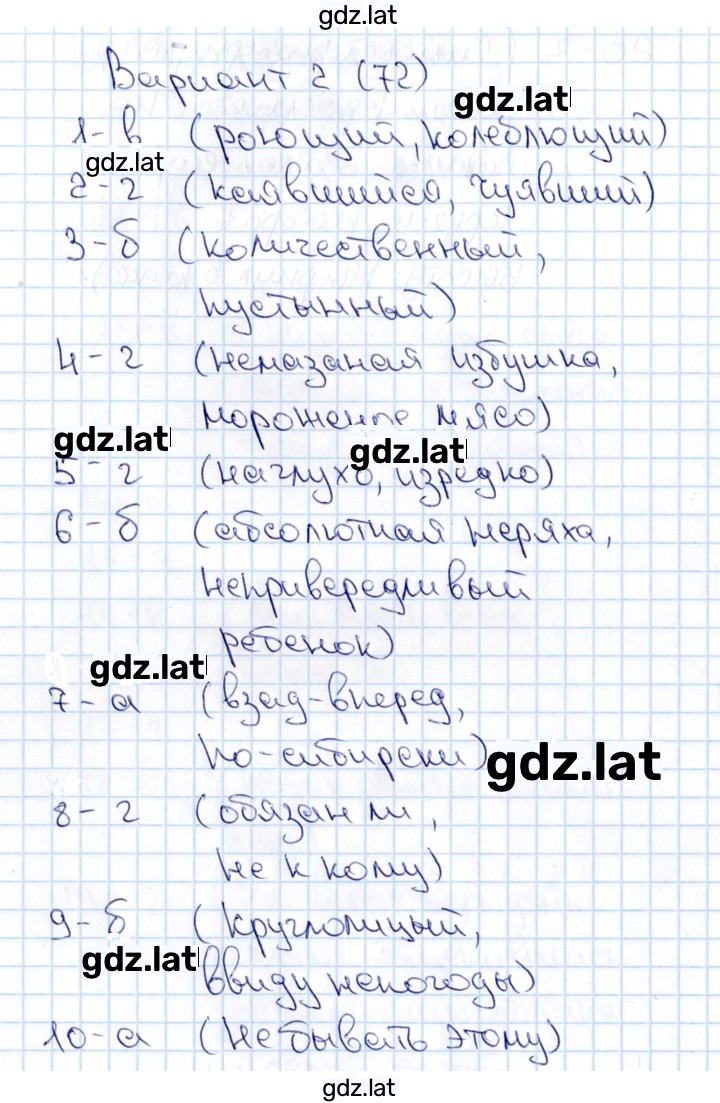 gdz.lat
Вариант 2 (72)
gdz.lat
1-в (роющий, колеблющий)
gdz.lat
2-г (каявшийся, чуявший)
3-б (количественный,
пустынный)
4-г (немазаная избушка,
мороженое мясо)
gdz.lat
gdz.lat
5-г (наглухо, изредко)
6-б (абсолютная неряха,
непривередливый
ребенок)
gdz.lat
7-а (взад-вперед,
по-сибирски)
gdz.lat
8-г (обязан ли,
не к кому)
9-б (круглолицый,
gdz.lat
ввиду непогоды)
10-а (Не бывать этому)
gdz.lat